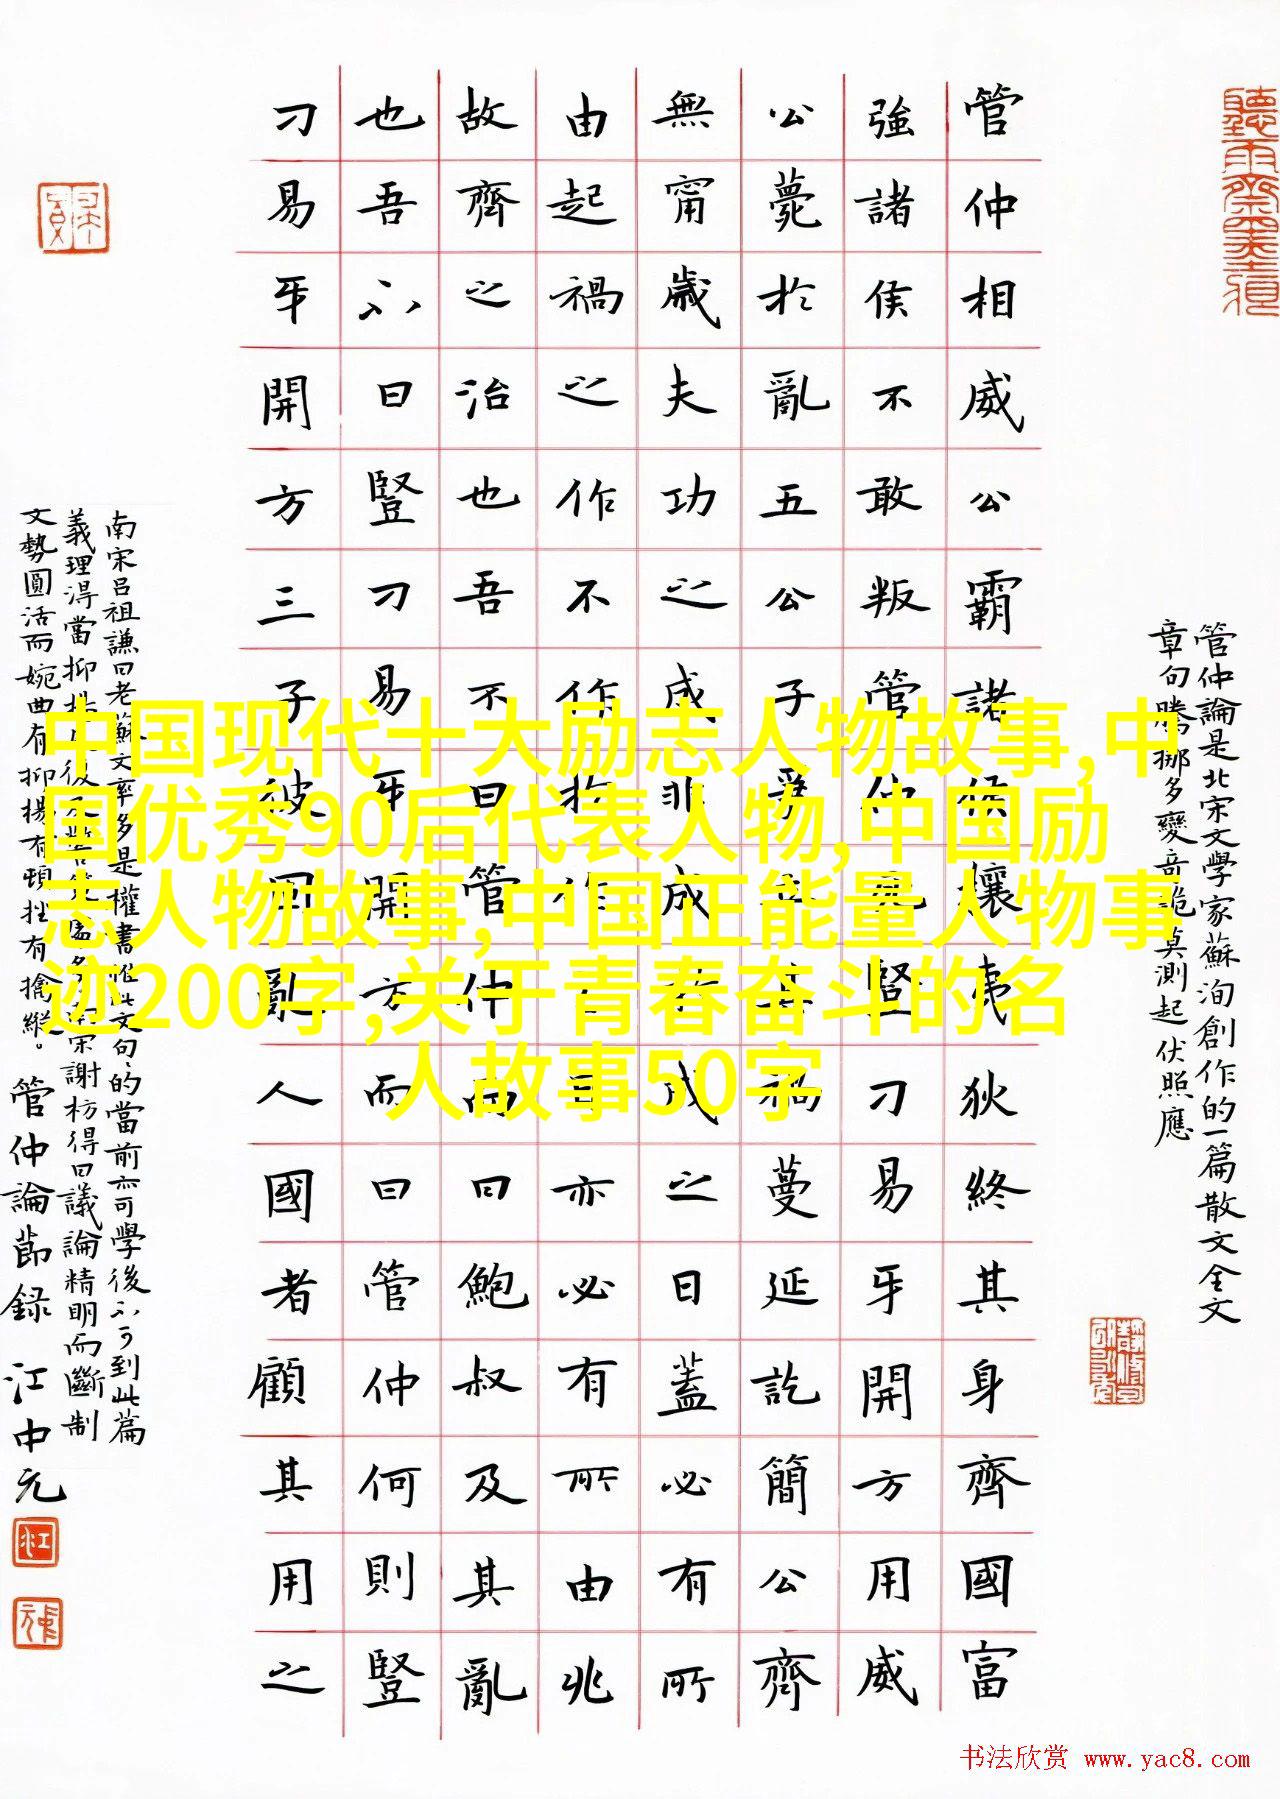 管仲論是北宋文學家蘇洵創作的一篇散文全文
章句騰挪多變奇詭莫測起伏照應
管仲相威公霸諸侯攘夷狄終其身齊國富
強諸侯不敢叛管仲死豎刁易牙開方用威
公薨於亂五公子爭立其禍蔓延訖簡公齊
無甯歲夫功之成非成於成之日蓋必有所
由起禍之作不作於作之日亦必有所由兆
故齊之治也吾不曰管仲而曰鮑叔及其亂
也吾不曰豎刁易牙開方而曰管仲何則豎
刁易牙開方三子彼固亂人國者顧其用之
南宋呂祖謙曰老蘇文率多是權書惟此文句句的當前亦可學後不可到此篇
義理淂當抑揚反復及警策處多南宋謝枋得曰議論精明而斷制
文勢圓活而婉曲有抑揚有頓挫有擒縱。管仲論節錄 江中元
中国现代十大励志人物故事,中
国优秀90后代表人物,中国励
志人物故事,中国正能量人物事
迹200字,关于青春奋斗的名
人故事50字
书法欣赏 www.yac8.com